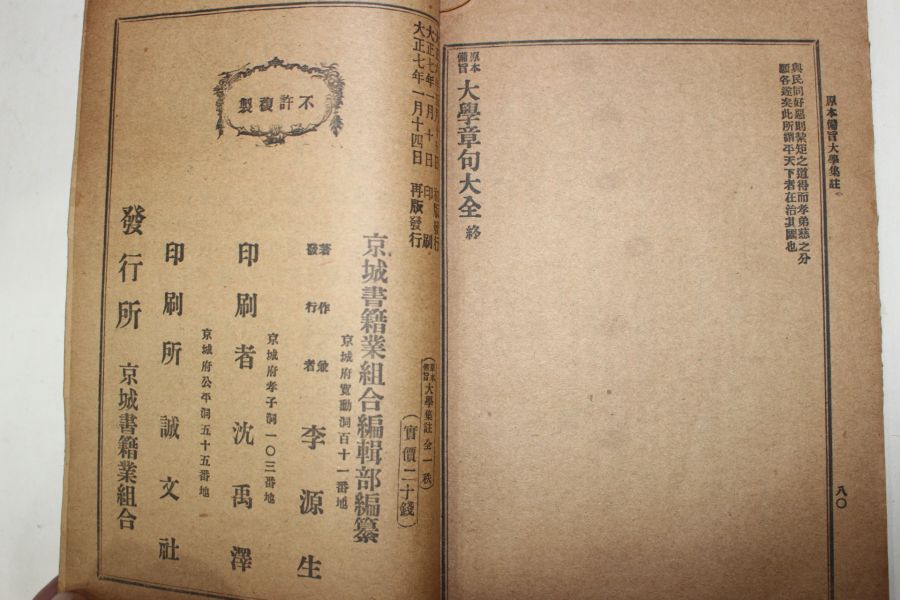 原本備旨大學集註
八〇
與民同好惡則絜矩之道得而孝弟慈之分
願各遂矣此所謂平天下者在治其國也
原本
備旨
大學章句大全 終
大正七年一月十日 印刷
大正七年一月十四日 再版發行
原本
備旨
大學集註 全一秩
實價二十錢
京城書籍業組合編輯部編纂
京城府寬勳洞百十一番地
著作兼
發行者 李源生
京城府孝子洞一〇三番地
印刷者 沈禹澤
京城府公平洞五十五番地
印刷所 誠文社
發行所 京城書籍業組合
不許複製